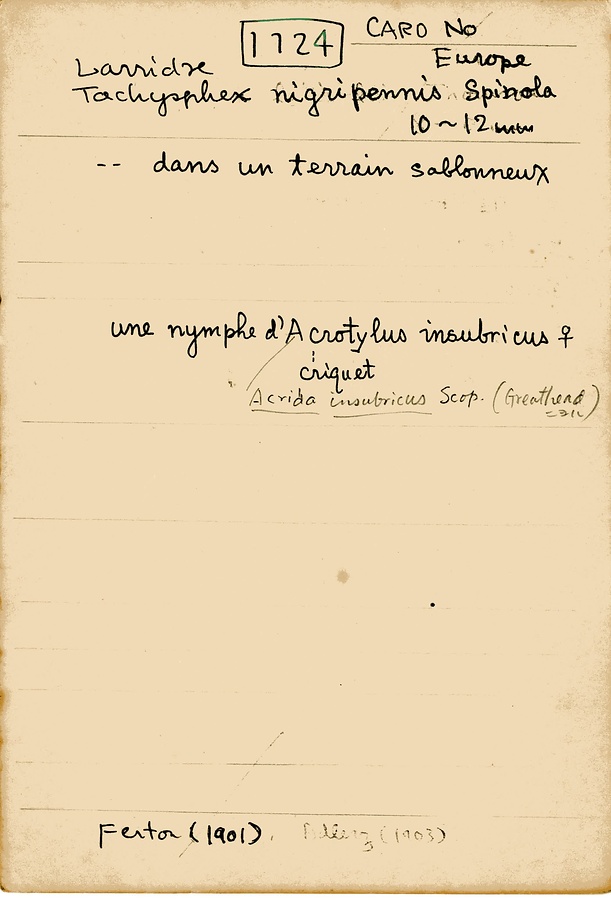 1724 CARD No
Europe
Larridae
Tachysphex nigripennis Spinola
10~12mm
-- dans un terrain sablonneux
une nymphe d'Acrotylus insubricus ♀
criquet
Acrida insubricus Scop. (Greathead)
Ferton (1901). (1903)